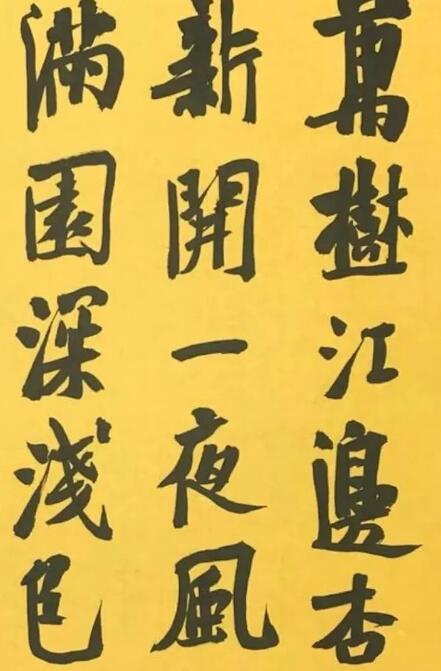 萬樹江邊杏
新開一夜風
滿園深淺色